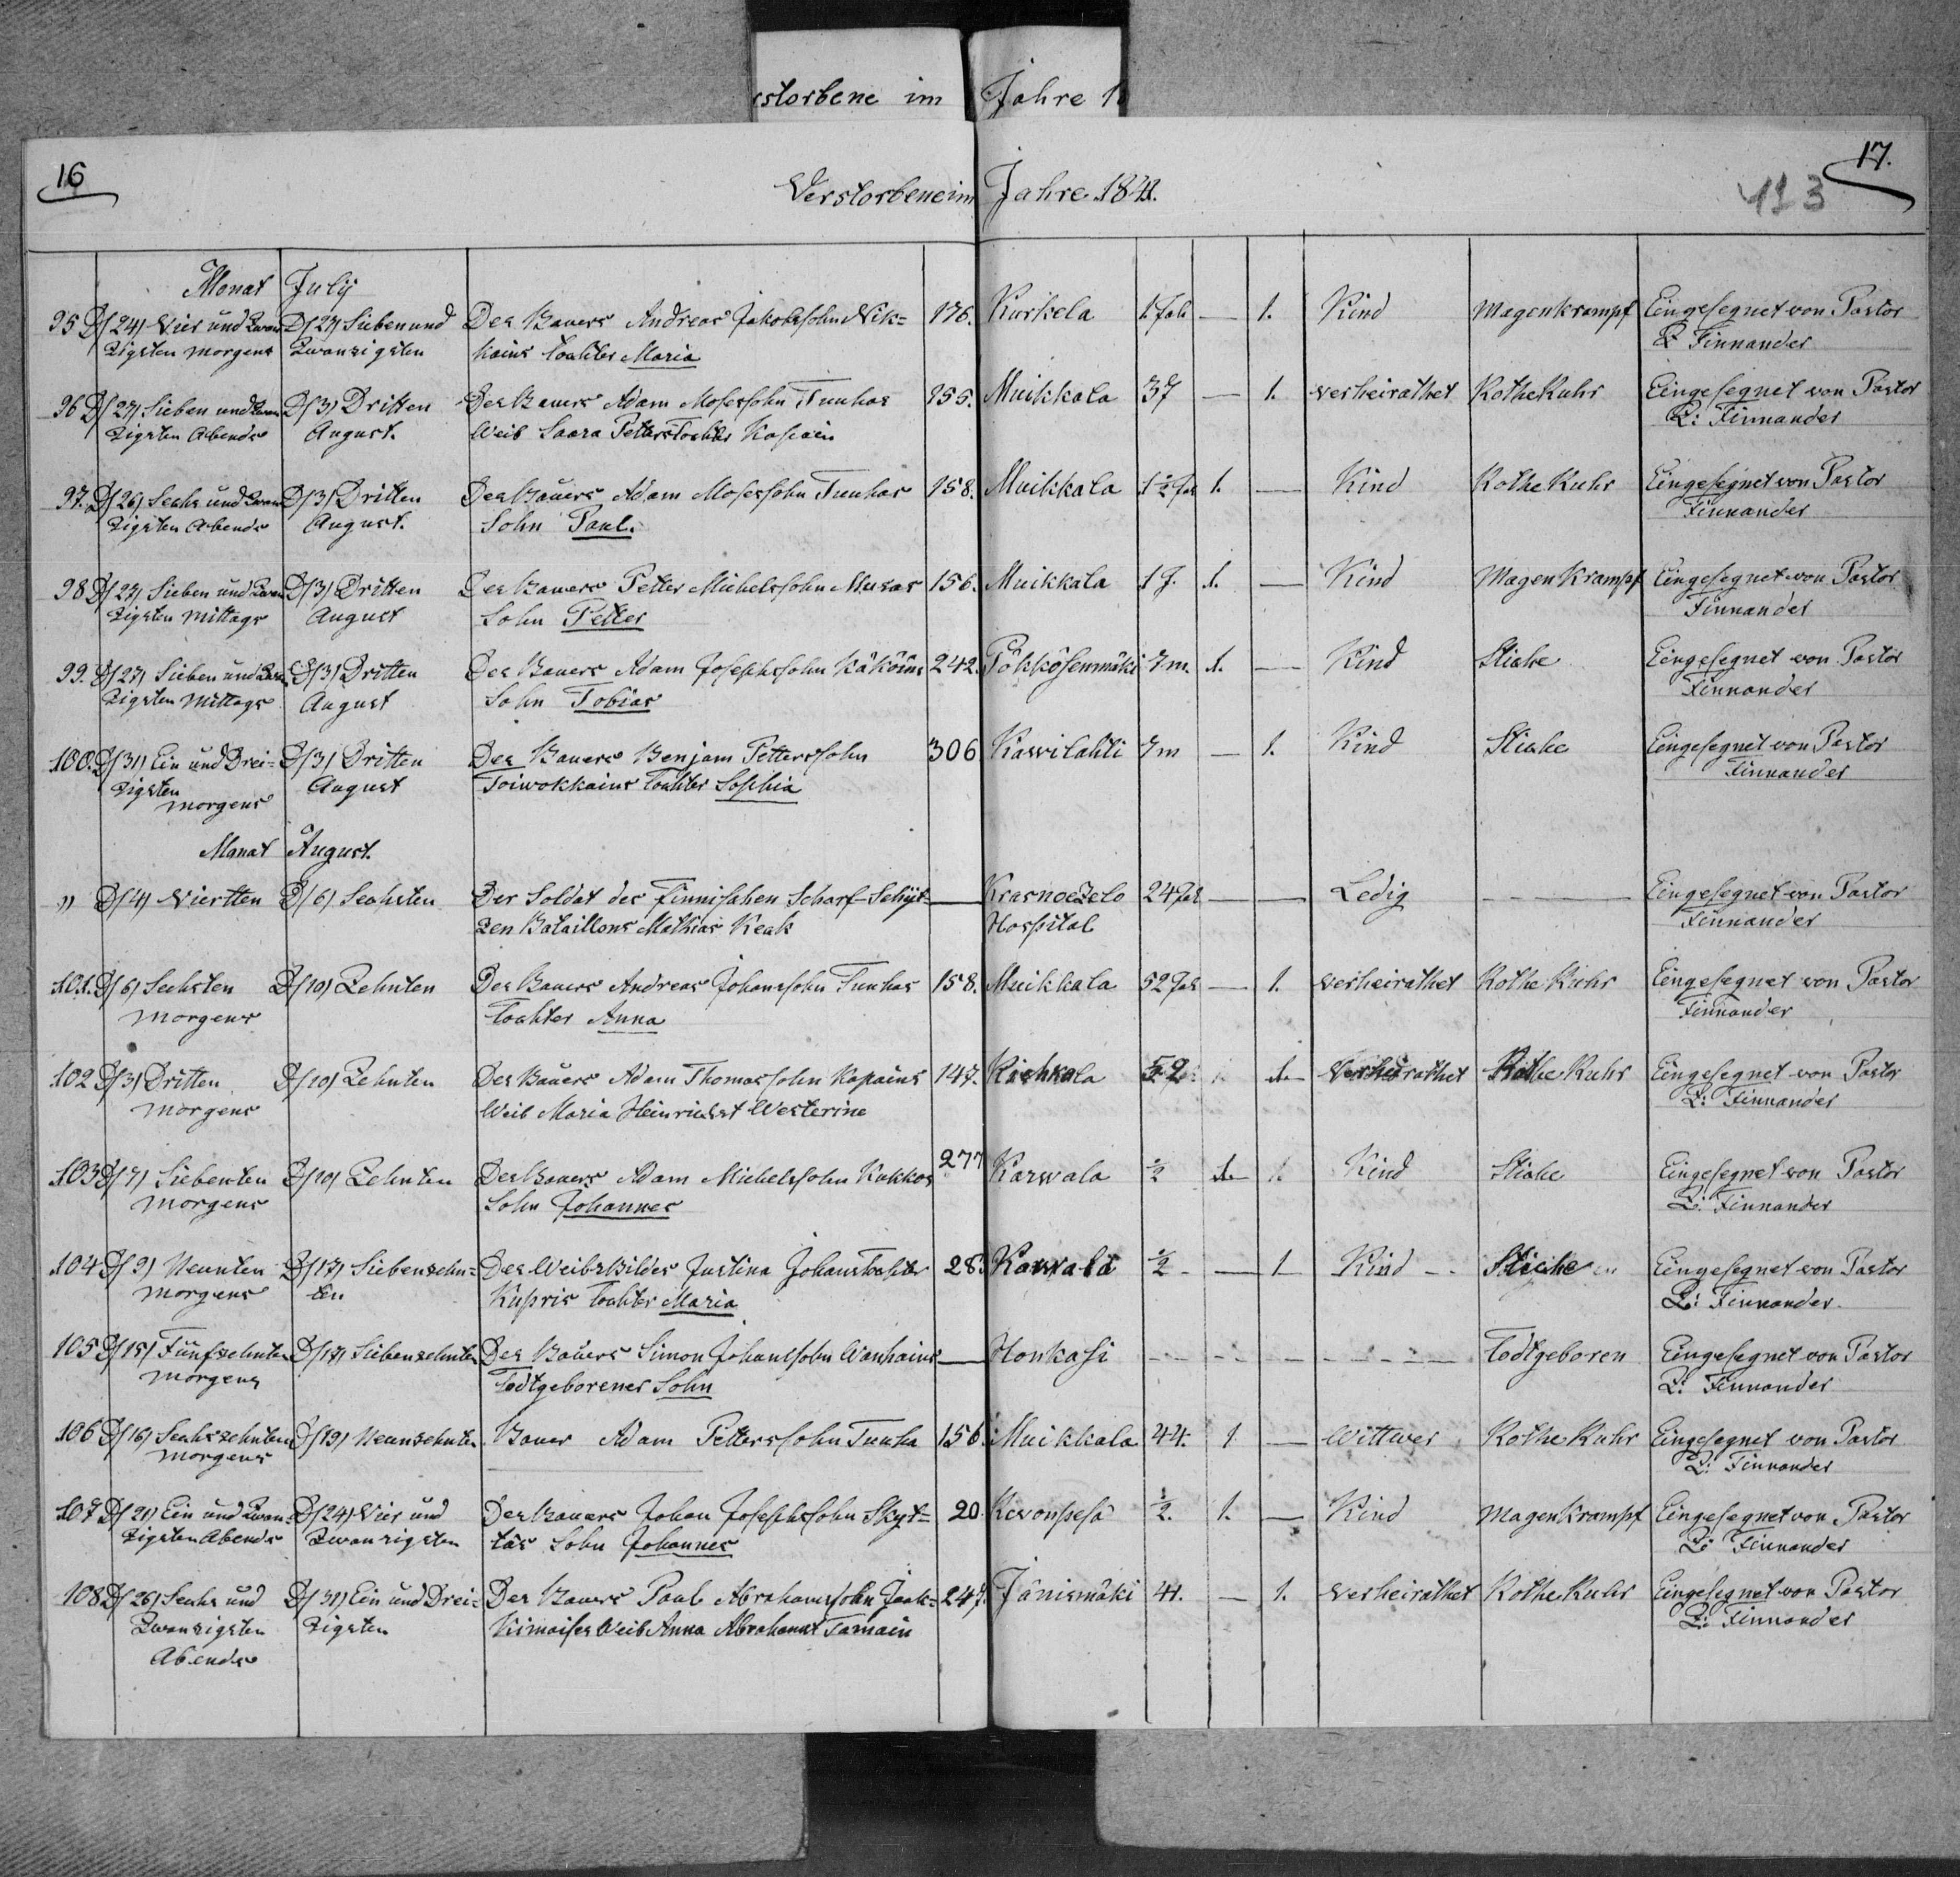 storbene im Jahre 1
16
17.
Verstorbene im Jahre 1841.
113
Monat July
95 D/24/ Vier und Zwan D/27/ Sieben und Des Bauers Andreas Jakobssohn Nik= 176. Kurkela 1 Jah — 1. Kind Magenkrampf Eingesegnet von Pastor
zigsten morgens Zwanzigsten kains Tochter Maria Finnander
96 D/27/ Sieben und Zwan D/3/ Dritten Des Bauers Adam Mosessohn Tuuhas 155. Muikkala 37 — 1. verheirathet Rothe Ruhr Eingesegnet von Pastor
zigsten Abends August. Weib Saara Petters Tochter L: Finnander
97. D/26/ Sechs und Zwan D/3/ Dritten Des Bauers Adam Mosessohn Tuuhas 158. Muikkala 1½ Jah 1. — Kind Rothe Ruhr Eingesegnet von Pastor
zigsten Abends August. Sohn Paul. Finnander
98 D/27/ Sieben und Zwan D/3/ Dritten Des Bauers Petter Michelssohn Musas 156. Muikkala 1 J. 1. — Kind Magen Krampf Eingesegnet von Pastor
zigsten Mittags August Sohn Petter Finnander
99. D/27/ Sieben und Zwan D/3/ Dritten Des Bauers Adam Josephssohn Käköins 242. Pökkösenmäki 7m. 1. — Kind Stiche Eingesegnet von Pastor
zigsten Mittags August Sohn Tobias Finnander
100. D/31/ Ein und Drei= D/3/ Dritten Des Bauers Benjam Petterssohn 306 Kaswilahti 7m — 1. Kind Stiche Eingesegnet von Pastor
zigsten August Toiwokkains Tochter Sophia Finnander
morgens
Monat August.
" D/4/ Viertten D/6/ Sechsten Der Soldat des Finnischen Scharf-Schüt= — Krasnoezelo 24 Jah — — Ledig — Eingesegnet von Pastor
zen Bataillons Mathias Keak Hospital Finnander
101. D/6/ Sechsten D/10/ Zehnten Des Bauers Andreas Johanssohn Tuuhas 158. Muikkala 52 Jah — 1. verheirathet Rothe Ruhr Eingesegnet von Pastor
morgens Tochter Anna Finnander
102 D/3/ Dritten D/10/ Zehnten Des Bauers Adam Thomassohn Kapains 147. 52 1. Verheirathet Rothe Ruhr Eingesegnet von Pastor
morgens Weib Maria Heinrichst Westerine L: Finnander
103 D/7/ Siebenten D/10/ Zehnten Des Bauers Adam Michelssohn Kukkos 277 Karwala ½ 1. 1. Kind Stiche Eingesegnet von Pastor
morgens Sohn Johannes L. Finnander
104 D/9/ Neunten D/17/ Siebenzehn= Des Weibsbildes Justina Johanstochter 28. Karwala ½ — 1 Kind Stiche Eingesegnet von Pastor
morgens ten Kupris Tochter Maria L: Finnander.
105 D/15/ Fünfzehnten D/17/ Siebenzehnten Des Bauers Simon Johanssohn Wanhains — Honkasi — Todtgeboren Eingesegnet von Pastor
morgens Todtgeborener Sohn L: Finnander
106 D/16/ Sechszehnten D/19/ Neunzehnten Bauer Adam Petterssohn Tuuha 156. Muikkala 44. 1 — Wittwer Rothe Ruhr Eingesegnet von Pastor
morgens L: Finnander
107 D/21/ Ein und Zwan= D/24/ Vier und Des Bauers Johan Josephssohn Skyt= 20. ½. 1. — Kind Magenkrampf Eingesegnet von Pastor
zigsten Abends Zwanzigsten täs Sohn Johannes L: Finnander
108 D/26/ Sechs und D/31/ Ein und Drei= Des Bauers Paul Abrahamssohn Jaak= 247. Jänismäki 41. — 1. verheirathet Rothe Ruhr Eingesegnet von Pastor
Zwanzigsten zigsten Weib Anna Abrahamst Tamain L: Finnander
Abends